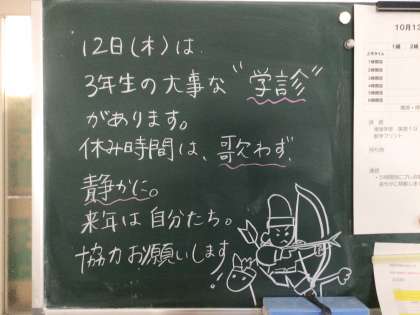 12日(木)は
3年生の大事な"学診"
があります。
休み時間は、歌わず、
静かに。
来年は自分たち。
協力お願いします
10月1
1組 2組
連絡